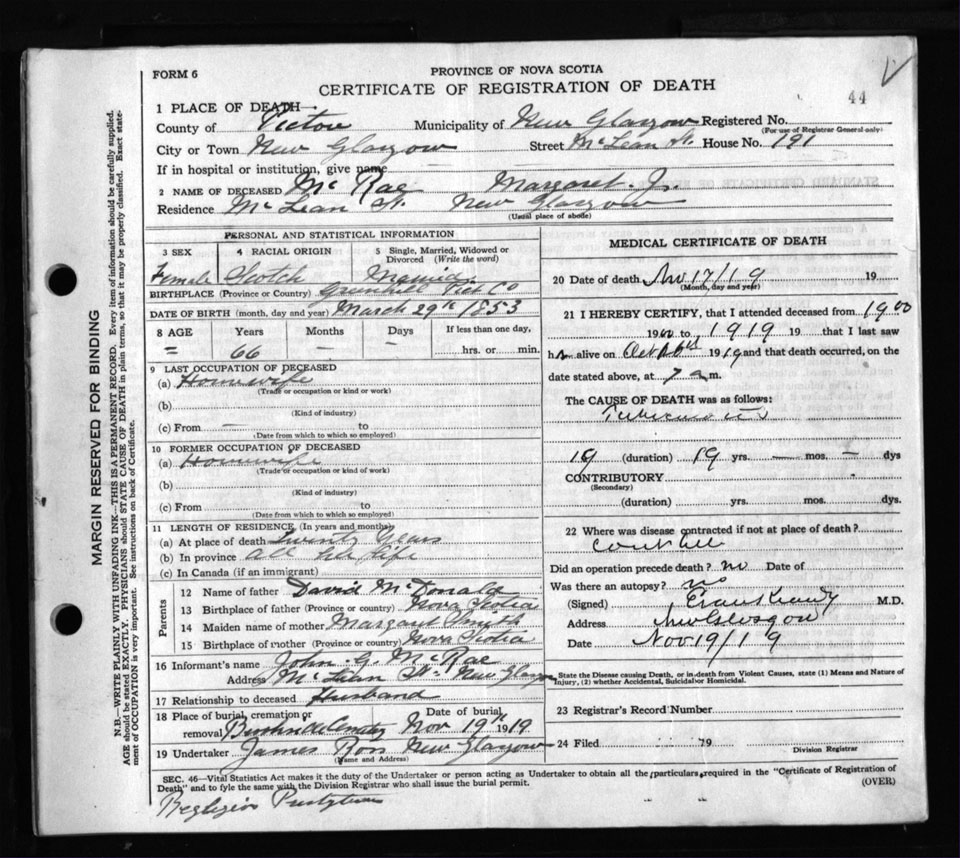 FORM 6
PROVINCE OF NOVA SCOTIA
CERTIFICATE OF REGISTRATION OF DEATH
44
1 PLACE OF DEATH—
County of Pictou Municipality of New Glasgow Registered No.
(For use of Registrar General only)
City or Town New Glasgow Street McLean St. House No. 191
If in hospital or institution, give name
2 NAME OF DECEASED Mc Rae Margaret. J.
Residence McLean St. New Glasgow
(Usual place of abode)
PERSONAL AND STATISTICAL INFORMATION
3 SEX 4 RACIAL ORIGIN 5 Single, Married, Widowed or Divorced (Write the word)
Female Scotch Married
BIRTHPLACE (Province or Country) Greenhill Pict Co
DATE OF BIRTH (month, day and year) March 29th 1853
8 AGE Years Months Days If less than one day,
= 66 — — ......hrs. or ...... min.
9 LAST OCCUPATION OF DECEASED
(a) Housewife
(Trade or occupation or kind or work)
(b)
(Kind of industry)
(c) From — to
(Date from which to which so employed)
10 FORMER OCCUPATION OF DECEASED
(a) Housewife
(Trade or occupation or kind of work)
(b)
(Kind of industry)
(c) From to
(Date from which to which so employed)
11 LENGTH OF RESIDENCE (In years and months)
(a) At place of death Twenty Years
(b) In province All her life
(c) In Canada (if an immigrant)
Parents
12 Name of father David McDonald
13 Birthplace of father (Province or country) Nova Scotia
14 Maiden name of mother Margaret Smith
15 Birthplace of mother (Province or country) Nova Scotia
16 Informant's name John G. McRae
Address McLean St. New Glasgow
17 Relationship to deceased Husband
18 Place of burial, cremation or removal Cemetery Date of burial Nov 19th 1919
19 Undertaker James Ross New Glasgow
(Name and Address)
MEDICAL CERTIFICATE OF DEATH
20 Date of death Nov 17/19 19
(Month, day and year)
21 I HEREBY CERTIFY, that I attended deceased from 1900
19 to 1919 19 that I last saw
h er alive on Oct 1919 and that death occurred, on the
date stated above, at 7 a m.
The CAUSE OF DEATH was as follows:
19 (duration) 19 yrs. — mos. — dys
CONTRIBUTORY
(Secondary)
(duration) yrs. mos. dys.
22 Where was disease contracted if not at place of death?
Did an operation precede death? no Date of
Was there an autopsy? no
(Signed) Evan Kennedy M.D.
Address New Glasgow
Date Nov 19/19
State the Disease causing Death, or in death from Violent Causes, state (1) Means and Nature of
Injury, (2) whether Accidental, Suicidal or Homicidal.
23 Registrar's Record Number
24 Filed 19
Division Registrar
SEC. 46—Vital Statistics Act makes it the duty of the Undertaker or person acting as Undertaker to obtain all the particulars required in the "Certificate of Registration of
Death" and to fyle the same with the Division Registrar who shall issue the burial permit.
(OVER)
Religion Presbyterian
MARGIN RESERVED FOR BINDING
N.B.—WRITE PLAINLY WITH UNFADING INK—THIS IS A PERMANENT RECORD. Every item of information should be carefully supplied.
AGE should be stated EXACTLY. PHYSICIANS should STATE CAUSE OF DEATH in plain terms, so that it may be properly classified. Exact state-
ment of OCCUPATION is very important. See instructions on back of Certificate.